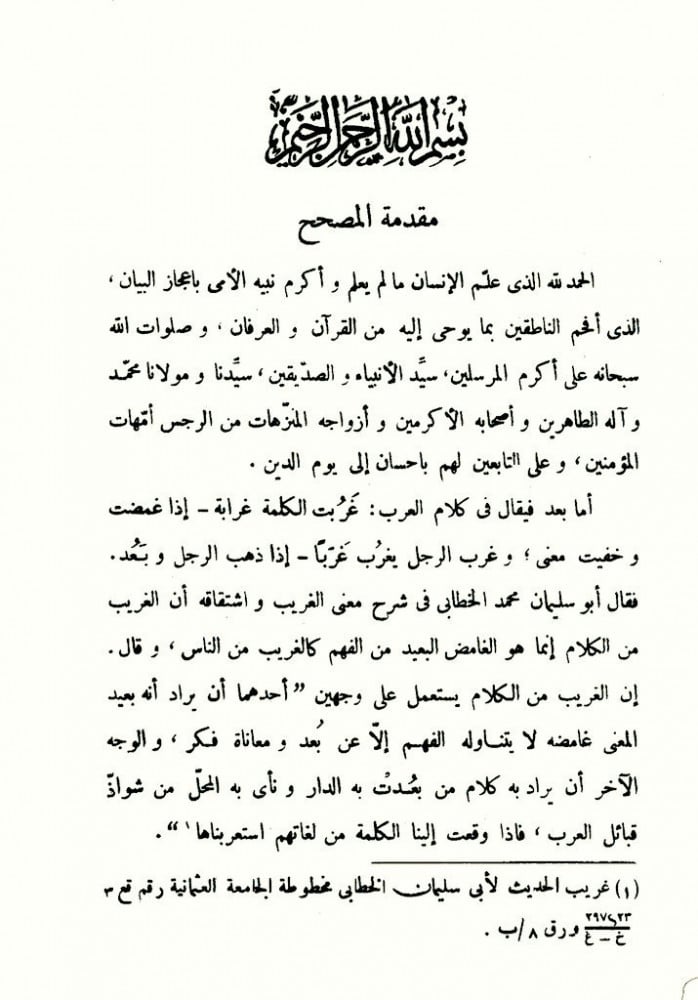 بسم الله الرحمن الرحيم
مقدمة المصحح
الحمد لله الذى علّم الإنسان مالم يعلم و أكرم نبيه الأمى باعجاز البيان ،
الذى أفحم الناطقين بما يوحى إليه من القرآن و العرفان ، و صلوات الله
سبحانه على أكرم المرسلين، سيَّد الأنبياء و الصدّيقين ، سيَّدنا و مولانا محمّد
و آله الطاهرين و أصحابه الأكرمين و أزواجه المنزّهات من الرجس أمّهات
المؤمنين ، و على التابعين لهم باحسان إلى يوم الدين .
أما بعد فيقال فى كلام العرب : غَرُبت الكلمة غرابة – إذا غمضت
و خفيت معنى ؛ و غرب الرجل يغرُب غَرّبًا – إذا ذهب الرجل و بَعُد .
فقال أبو سليمان محمد الخطابى فى شرح معنى الغريب و اشتقاقه أن الغريب
من الكلام إنما هو الغامض البعيد من الفهم كالغريب من الناس ، و قال .
إن الغريب من الكلام يستعمل على وجهين ” أحدهما أن يراد أنه بعيد
المعنى غامضه لا يتناوله الفهم إلّا عن بُعد و معاناة فكر ، و الوجه
الآخر أن يراد به كلام من بعُدتْ به الدار و نأى به المحلّ من شواذّ
قبائل العرب ، فاذا وقعت إلينا الكلمة من لغاتهم استعربناها ١ “ .
(١) غريب الحديث لأبى سليمان الخطابى مخطوطة الجامعة العثمانية رقم قع ٣
خ – غ ورق ٨/ب .